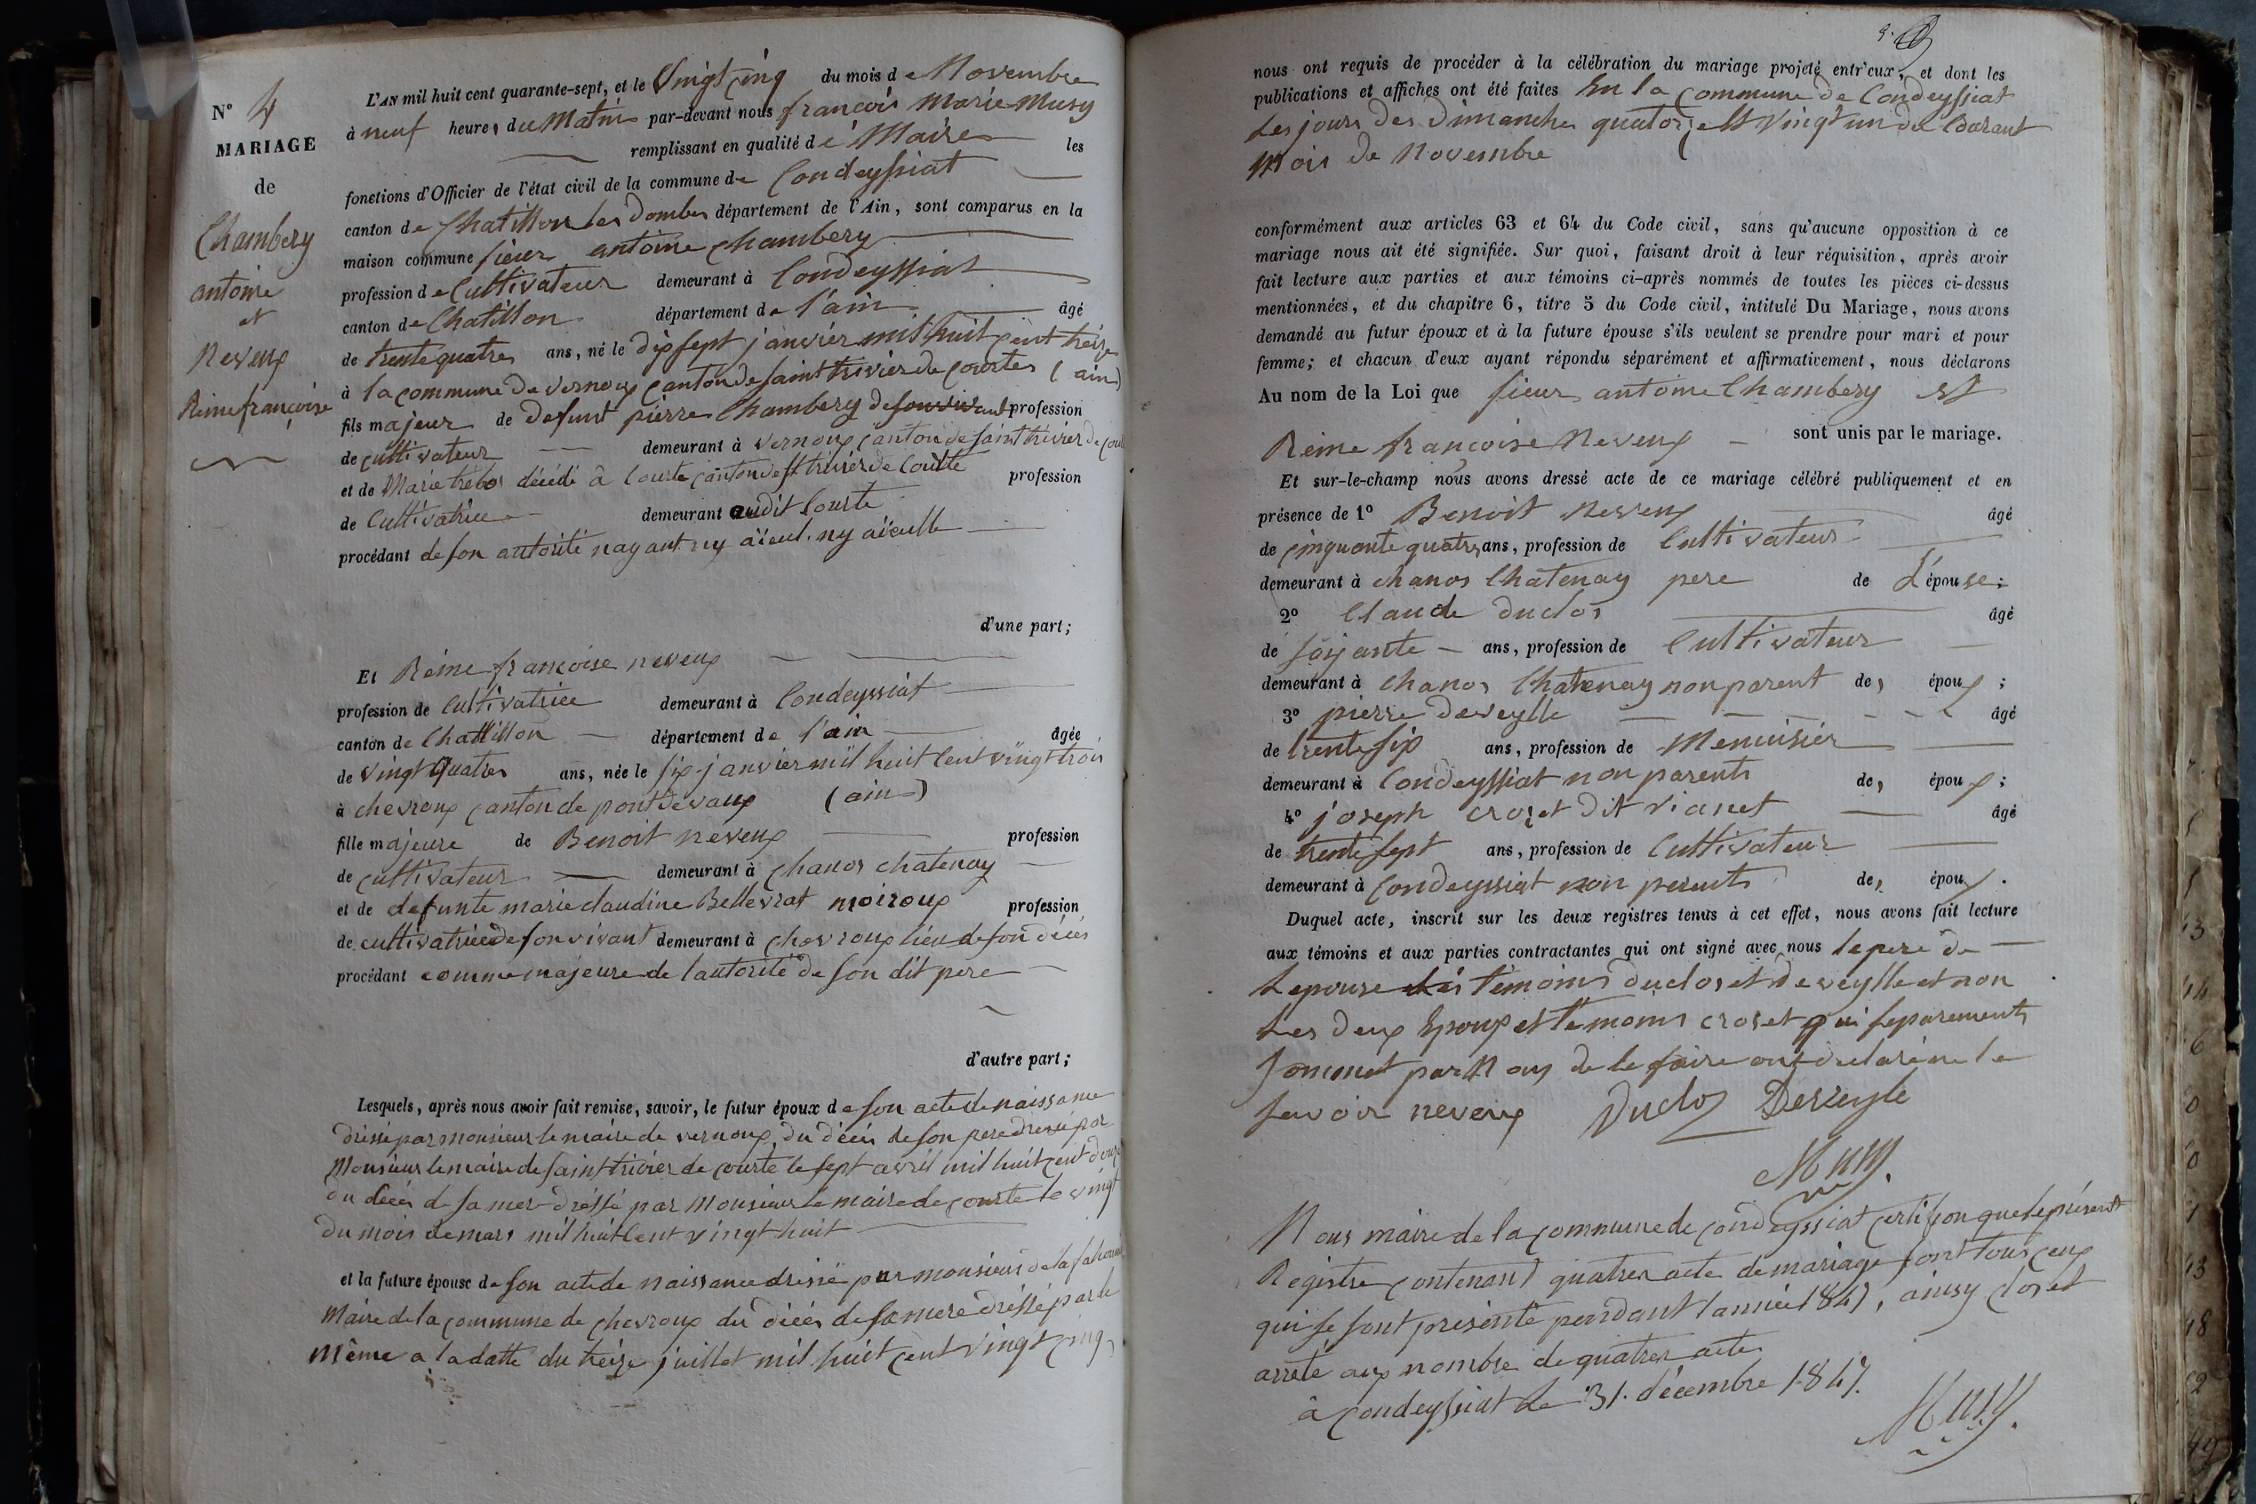 N° 4
MARIAGE
de
Chambery
antoine
et
Neveux
Reine françoise
L'AN mil huit cent quarante-sept, et le Vingt cinq du mois de Novembre
à neuf heures du Matin par-devant nous françois Marie Musy
remplissant en qualité de Maire les
fonctions d'Officier de l'état civil de la commune de Condeyssiat
canton de Chatillon les Dombes département de l'Ain, sont comparus en la
maison commune sieur antoine Chambery
profession de Cultivateur demeurant à Condeyssiat
canton de Chatillon département de l'ain âgé
de trente quatre ans, né le dix sept janvier mil huit cent treize
à la commune de vernoux canton de saint trivier de courtes (ain)
fils majeur de defunt pierre Chambery de son vivant profession
de cultivateur demeurant à vernoux canton de saint trivier de cour
et de Marie trebos décédé à Courte canton de st trivier de Courte profession
de Cultivatrice demeurant audit Courte
procédant de son autorité nayant ny aïeul ny aïeulle
d'une part;
Et Reine françoise neveux
profession de Cultivatrice demeurant à Condeyssiat
canton de Chattillon département de l'ain âgée
de vingt quatre ans, née le six janvier mil huit Cent vingt trois
à chevroux canton de pont de vaux (ain)
fille majeure de Benoit neveux profession
de cultivateur demeurant à chanos chatenay
et de defunte marie claudine Bellevrat moiroux profession
de cultivatrice de son vivant demeurant à chevroux lieu de son décés
procédant comme majeure de l'autorité de son dit pere
d'autre part;
Lesquels, après nous avoir fait remise, savoir, le futur époux de son acte de naissance
dréssé par monsieur le maire de vernoux, du décés de son pere dressé par
Monsieur le maire de saint trivier de courte le sept avril mil huit cent douze
du décés de sa mer dréssé par Monsieur le maire de courte le vingt
du mois de mars mil huit Cent vingt huit
et la future épouse de son acte de naissance dressé par monsieur de la
Maire de la commune de chevroux du décés de sa mere dréssé par le
même a la datte du treize juillet mil huit cent vingt cinq
nous ont requis de procéder à la célébration du mariage projeté entr'eux, et dont les
publications et affiches ont été faites En la Commune de Condeyssiat
Les jours des Dimanches quatorze et vingt un du Courant
mois de Novembre
conformément aux articles 63 et 64 du Code civil, sans qu'aucune opposition à ce
mariage nous ait été signifiée. Sur quoi, faisant droit à leur réquisition, après avoir
fait lecture aux parties et aux témoins ci-après nommés de toutes les pièces ci-dessus
mentionnées, et du chapitre 6, titre 5 du Code civil, intitulé Du Mariage, nous avons
demandé au futur époux et à la future épouse s'ils veulent se prendre pour mari et pour
femme; et chacun d'eux ayant répondu séparément et affirmativement, nous déclarons
Au nom de la Loi que sieur antoine Chambery Et
Reine françoise Neveux sont unis par le mariage.
Et sur-le-champ nous avons dressé acte de ce mariage célébré publiquement et en
présence de 1° Benoit neveux âgé
de cinquante quatre ans, profession de Cultivateur
demeurant à chanos Chatenay pere de L'épouse;
2° Claude duclos âgé
de soixante ans, profession de Cultivateur
demeurant à chanos Chatenay non parent des époux;
3° pierre deveylle âgé
de trente six ans, profession de Menuisier
demeurant à Condeyssiat non parents des époux;
4° joseph crozet dit vianet âgé
de trente sept ans, profession de Cultivateur
demeurant à Condeyssiat non parents des époux.
Duquel acte, inscrit sur les deux registres tenus à cet effet, nous avons fait lecture
aux témoins et aux parties contractantes qui ont signé avec nous le pere de
Lepouse les témoins duclos et deveylle et non
Les deux Epoux et témoins crozet qui separement
sommet par Nous de le faire ont declaré ne le
savoir neveux Duclos Deveyle
Musy
Nous maire de la commune de Condeyssiat certifion que le présent
Régistre contenant quatres acte de mariage sont tous ceux
qui se sont présenté pendant l'année 1847, ainsy clos et
arreté aux nombre de quatres acte
à condeyssiat Le 31. décembre 1847.
Musy